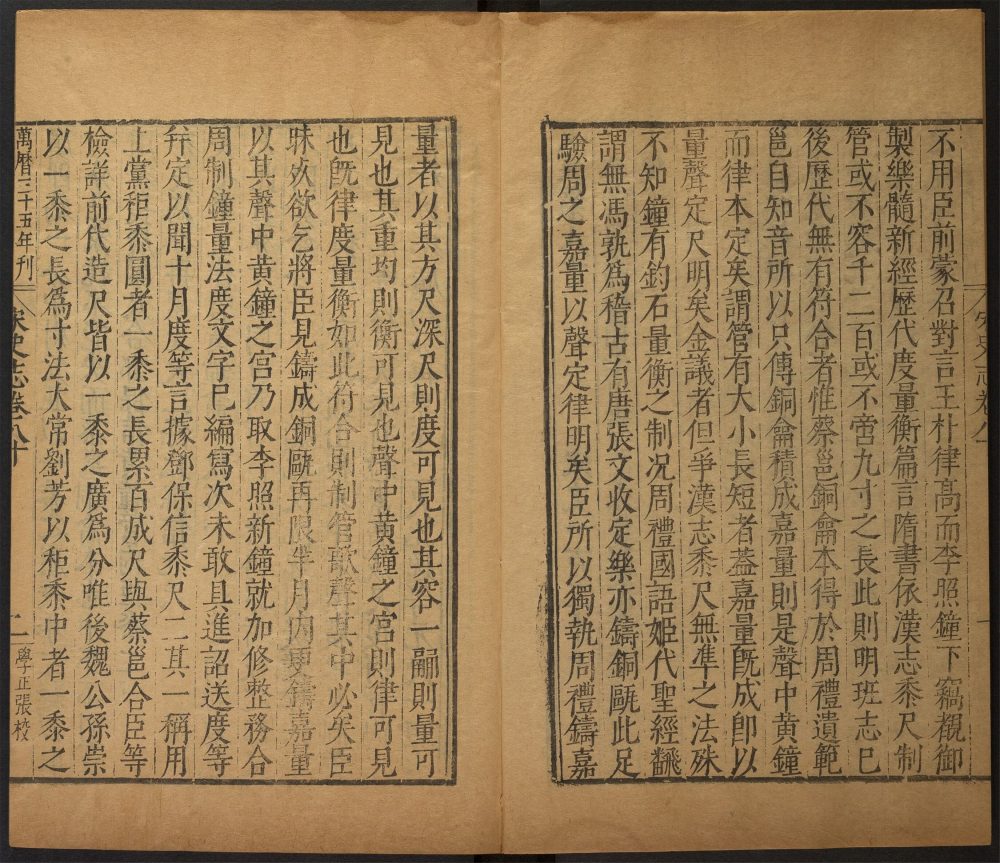 宋史志卷八十
一
不用臣前蒙召對言王朴律高而李照鐘下竊覩御
製樂髓新經歷代度量衡篇言隋書依漢志黍尺制
管或不容千二百或不啻九寸之長此則明班志已
後歷代無有符合者惟蔡邕銅龠本得於周禮遺範
邕自知音所以只傳銅龠積成嘉量則是聲中黄鐘
而律本定矣謂管有大小長短者蓋嘉量旣成卽以
量聲定尺明矣今議者但爭漢志黍尺無準之法殊
不知鐘有鈞石量衡之制况周禮國語姬代聖經飜
謂無馮孰爲稽古有唐張文收定樂亦鑄銅甌此足
驗周之嘉量以聲定律明矣臣所以獨執周禮鑄嘉
量者以其方尺深尺則度可見也其容一鬴則量可
見也其重均則衡可見也聲中黄鐘之宫則律可見
也旣律度量衡如此符合則制管歌聲其中必矣臣
昧妷欲乞將臣見鑄成銅甌再限半月内更鑄嘉量
以其聲中黄鐘之宫乃取李照新鐘就加修整務合
周制鐘量法度文字巳編寫次未敢具進詔送度等
幷定以聞十月度等言據鄧保信黍尺二其一稱用
上黨秬黍圓者一黍之長累百成尺與蔡邕合臣等
檢詳前代造尺皆以一黍之廣爲分唯後魏公孫崇
以一黍之長爲寸法大常劉芳以秬黍中者一黍之
萬曆二十五年刊
宋史志卷八十
二
學正張校